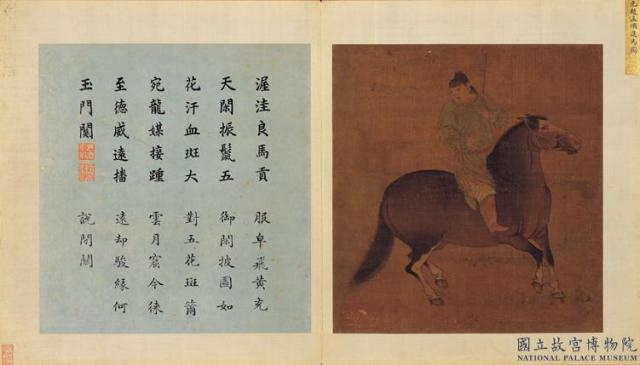 渥洼良馬貢
天閑振鬣五
花汗血斑大
宛龍媒接踵
至德威遠播
玉門關
服皁飛黃充
御閑披圖如
對五花斑籋
雲月窟今徠
遠却駿緣何
說閉關
元趙孟頫進馬圖
國立故宮博物院
NATIONAL PALACE MUSEUM